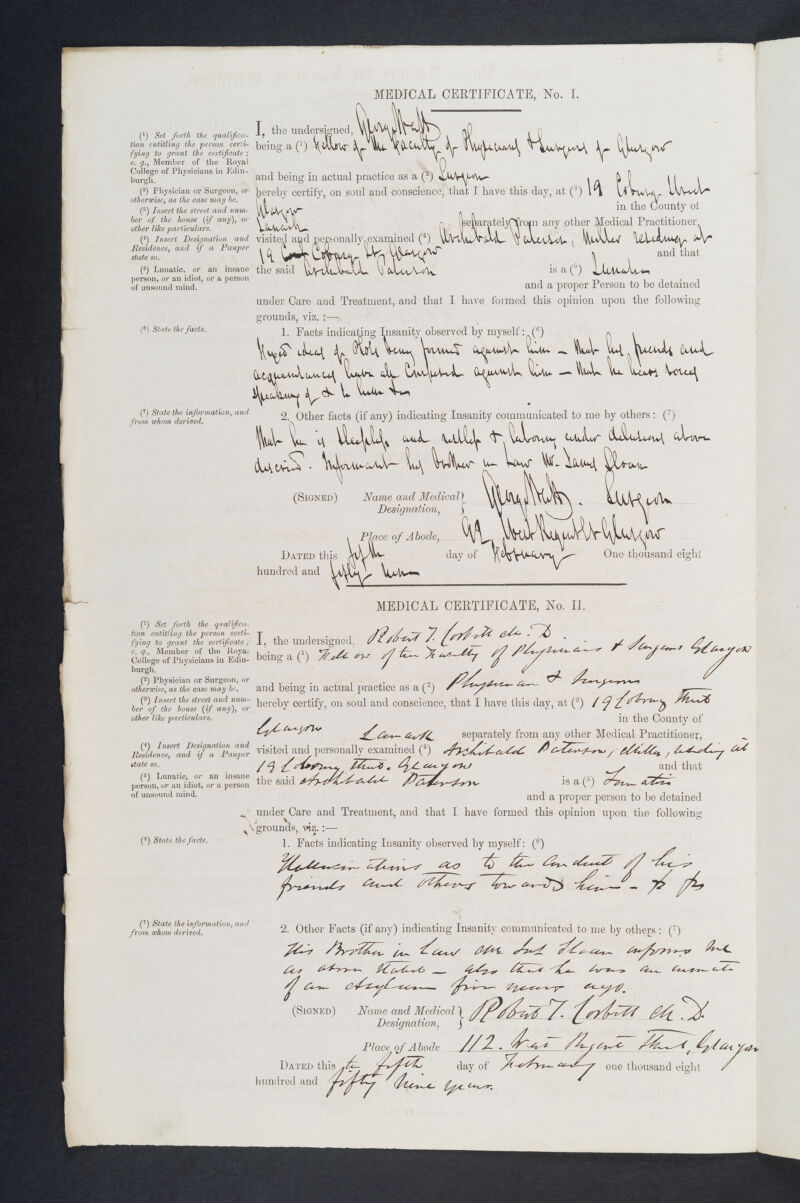 MEDICAL CERTIFICATE, No. I.
(¹) Set forth the qualifica-
tion entitling the person certi-
fying to grant the certificate;
e. g., Member of the Royal
College of Physicians in Edin-
burgh.
(²) Physician or Surgeon, or
otherwise, as the case may be.
(³) Insert the street and num-
ber of the house (if any), or
other like particulars.
(⁴) Insert Designation and
Residence, and if a Pauper
state so.
(⁵) Lunatic, or an insane
person, or an idiot, or a person
of unsound mind.
I, the undersigned, George Watt
being a (¹) Fellow of the Faculty of Physicians & Surgeons of Glasgow
and being in actual practice as a (²) Surgeon
hereby certify, on soul and conscience, that I have this day, at (³) 19 Coburg Street
Glasgow in the County of
Lanark separately from any other Medical Practitioner,
visited and personally examined (⁴) Archibald Paterson, Miller residing at
19 Coburg St, Glasgow and that
the said Archibald Paterson is a (⁵) Lunatic
and a proper Person to be detained
under Care and Treatment, and that I have formed this opinion upon the following
grounds, viz. :—
(⁶) State the facts.
1. Facts indicating Insanity observed by myself: (⁶)
Fixed ideas of Plots being formed against him — that his friends and
acquaintances have all Conspired against him — that he hears voices
speaking of & to him
(⁷) State the information, and
from whom derived.
2. Other facts (if any) indicating Insanity communicated to me by others: (⁷)
That he is sleepless and restless & laboring under delusions above
described. Informant his brother in Law Mr. James Sloan
(SIGNED) Name and Medical Designation, George Watt. Surgeon
Place of Abode, West Regent St Glasgow
DATED this fifth day of February One thousand eight
hundred and fifty nine
MEDICAL CERTIFICATE, No. II.
(¹) Set forth the qualifica-
tion entitling the person certi-
fying to grant the certificate;
e. g., Member of the Royal
College of Physicians in Edin-
burgh.
(²) Physician or Surgeon, or
otherwise, as the case may be.
(³) Insert the street and num-
ber of the house (if any), or
other like particulars.
(⁴) Insert Designation and
Residence, and if a Pauper
state so.
(⁵) Lunatic, or an insane
person, or an idiot, or a person
of unsound mind.
I, the undersigned, Robert T. Corbett M. D.
being a (¹) Fellow of the Faculty of Physicians & Surgeons Glasgow
and being in actual practice as a (²) Physician & Surgeon
hereby certify, on soul and conscience, that I have this day, at (³) 19 Coburg Street
in the County of
Glasgow Lanark separately from any other Medical Practitioner,
visited and personally examined (⁴) Archibald Paterson, Miller, residing at
19 Coburg Street. Glasgow and that
the said Archibald Paterson is a (⁵) Lunatic
and a proper person to be detained
under Care and Treatment, and that I have formed this opinion upon the following
grounds, viz. :—
(⁶) State the facts.
1. Facts indicating Insanity observed by myself: (⁶)
Hallucinations as to the Conduct of his
friends and others towards him
(⁷) State the information, and
from whom derived.
2. Other Facts (if any) indicating Insanity communicated to me by others: (⁷)
His Brother in Law Mr Sloan informs me
as above stated — also that he was an inmate
of an Asylum five years ago.
(SIGNED) Name and Medical Designation, Robert T. Corbett M. D.
Place of Abode 112. West Regent Street, Glasgow
DATED this the fifth day of February one thousand eight
hundred and fifty nine years.